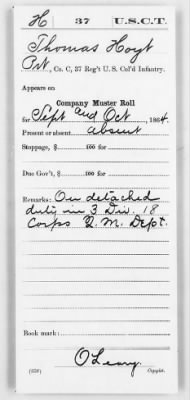 H 37 U.S.C.T.
Thomas Hoyt
Pvt, Co. C, 37 Reg't U. S. Col'd Infantry.
Appears on
Company Muster Roll
for Sept and Oct, 1864.
Present or absent absent
Stoppage, $ 100 for
Due Gov't, $ 100 for
Remarks: On detached
duty in 3 Div. 18
Corps Q. M. Dept.
Book mark:
O'Leary.
(358) Copyist.